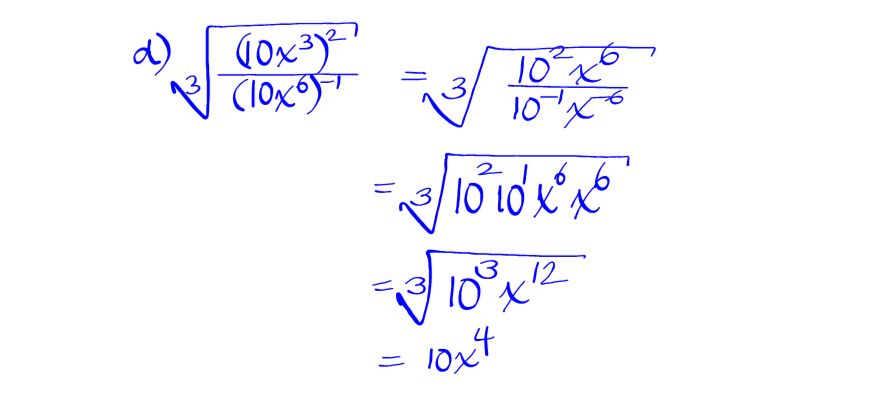 d) ∛((10x³)²/(10x⁶)⁻¹) = ∛(10²x⁶/10⁻¹x⁻⁶)
= ∛(10²10¹x⁶x⁶)
= ∛(10³x¹²)
= 10x⁴